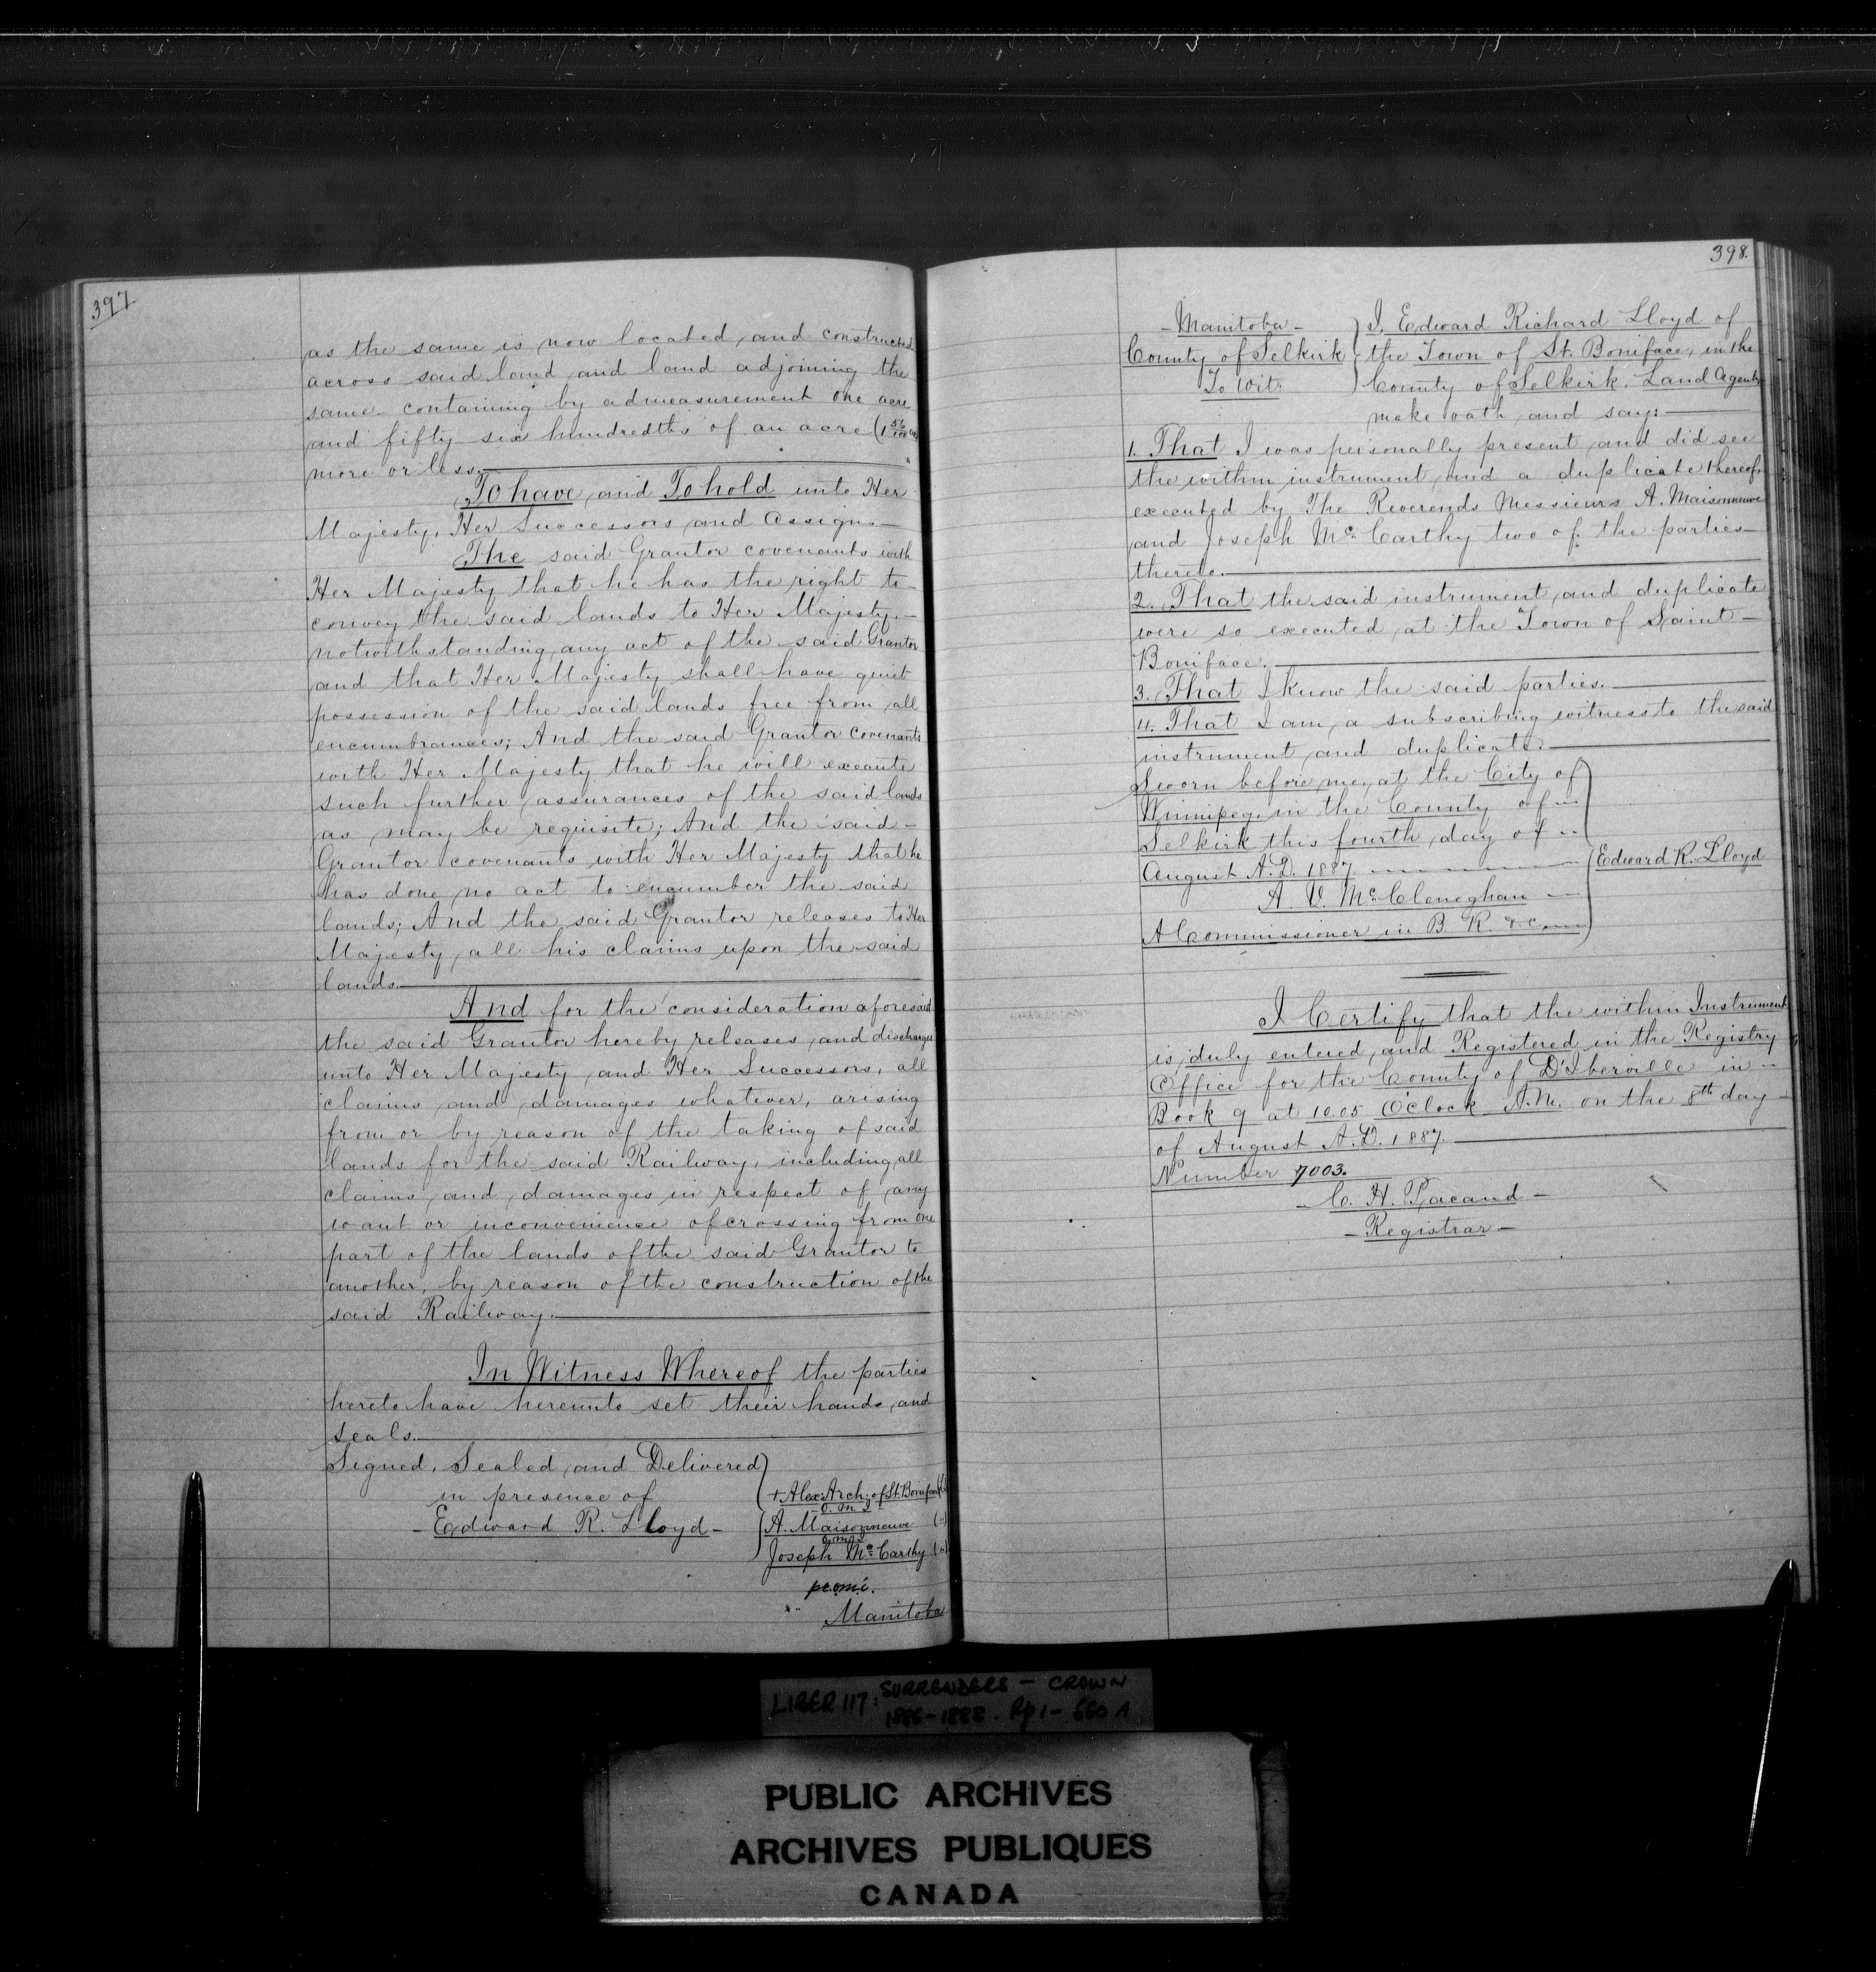 397
as the same is now located and constructed
across said land and land adjoining the
same containing by admeasurement one acre
and fifty six hundredths of an acre (1 56/100 ac)
more or less.
To have and To hold unto Her
Majesty, Her Successors and Assigns
The said Grantor covenants with
Her Majesty that he has the right to
convey the said lands to Her Majesty
notwithstanding any act of the said Grantor
and that Her Majesty shall have quiet
possession of the said lands free from all
encumbrances; And the said Grantor covenants
with Her Majesty that he will execute
such further assurances of the said lands
as may be requisite; And the said
Grantor covenants with Her Majesty that he
has done no act to encumber the said
lands; And the said Grantor releases to Her
Majesty all his claims upon the said
lands.
And for the consideration aforesaid
the said Grantor hereby releases and discharges
unto Her Majesty and Her Successors, all
claims and damages whatever, arising
from or by reason of the taking of said
lands for the said Railway, including all
claims and damages in respect of any
want or inconvenience of crossing from one
part of the lands of the said Grantor to
another, by reason of the construction of the
said Railway.
In Witness Whereof the parties
hereto have hereunto set their hands and
seals.
Signed, Sealed and Delivered
in presence of
Edward R. Lloyd
+ Alex: Arch: of St. Boniface
O.M.I
A. Maisonneuve (")
o.m.i
Joseph McCarthy (")
p.o.m.i.
Manitoba
398.
Manitoba
County of Selkirk
To Wit:
I, Edward Richard Lloyd of
the Town of St. Boniface, in the
County of Selkirk, Land Agent
make oath and say:
1. That I was personally present and did see
the within instrument and a duplicate thereof,
executed by The Reverends Messieurs A. Maisonneuve
and Joseph McCarthy two of the parties
thereto.
2. That the said instrument and duplicate
were so executed at the Town of Saint
Boniface.
3. That I know the said parties.
4. That I am a subscribing witness to the said
instrument and duplicate.
Sworn before me, at the City of
Winnipeg, in the County of
Selkirk this fourth day of
August A.D. 1887
A. V. McCleneghan
A Commissioner in B. R. &c.
Edward R. Lloyd
I Certify that the within Instrument
is duly entered and Registered in the Registry
Office for the County of D'Iberville in
Book 9 at 10.05 O'clock A.M. on the 8th day
of August A.D. 1887.
Number 7003.
C. H. Pacaud
Registrar
LIBER 117: SURRENDERS - CROWN
1886-1888. Pp 1-660 A
PUBLIC ARCHIVES
ARCHIVES PUBLIQUES
CANADA